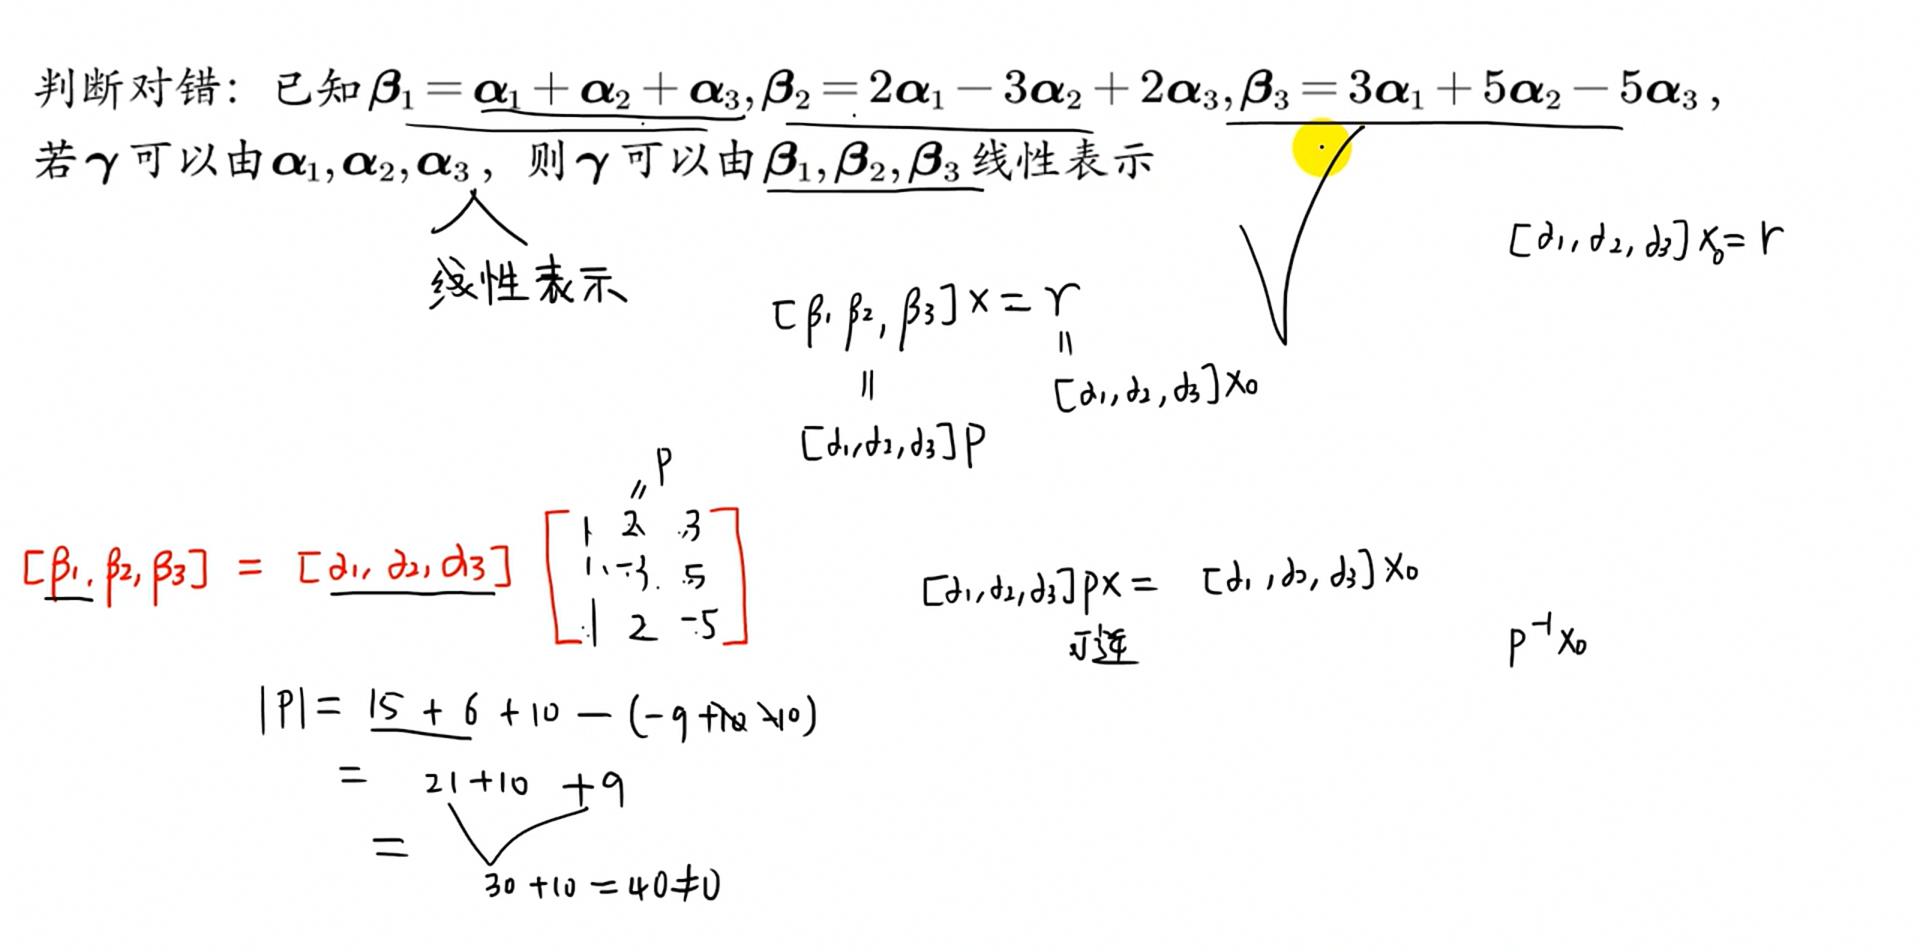 判断对错：已知β₁=α₁+α₂+α₃,β₂=2α₁−3α₂+2α₃,β₃=3α₁+5α₂−5α₃，
若γ可以由α₁,α₂,α₃，则γ可以由β₁,β₂,β₃线性表示
线性表示
[α₁,α₂,α₃]x₀=r
[β₁β₂,β₃]x=r
=
[α₁,α₂,α₃]x₀
=
[α₁,α₂,α₃]P
P
=
[β₁,β₂,β₃] = [α₁,α₂,α₃]
1 2 3
1 -3 5
1 2 -5
[α₁,α₂,α₃]Px= [α₁,α₂,α₃]x₀
可逆
P⁻¹x₀
|P|= 15+6+10−(-9+10-10)
= 21+10+9
= 30+10=40≠0